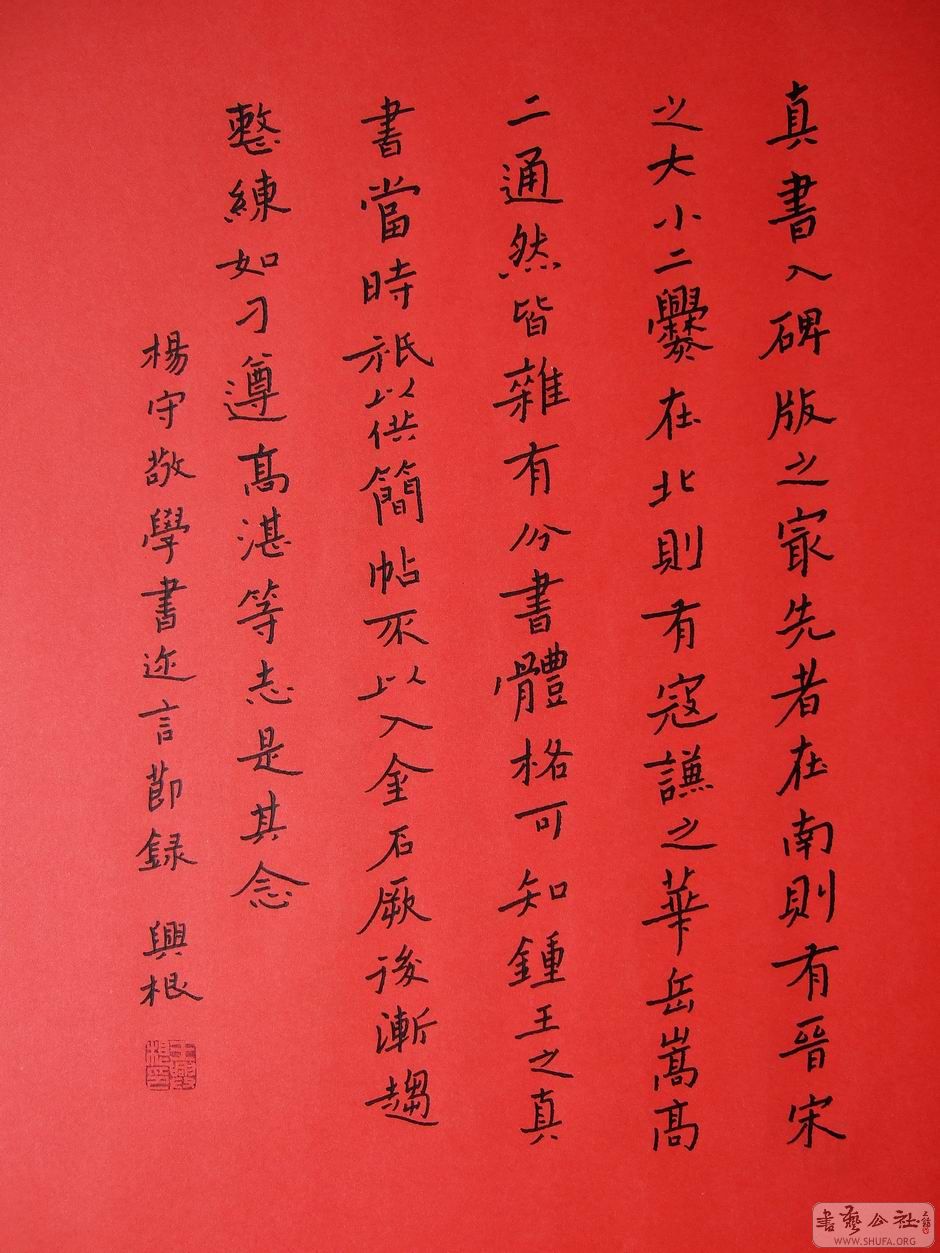 真書入碑版之冣先者在南則有晉宋
之大小二爨在北則有寇謙之華岳嵩高
二通然皆雜有分書體格可知鍾王之真
書當時祇以供簡帖不以入金石厥後漸趨
整練如刁遵高湛等志是其念
楊守敬學書迩言節録 興根
書藝公社
WWW.SHUFA.ORG